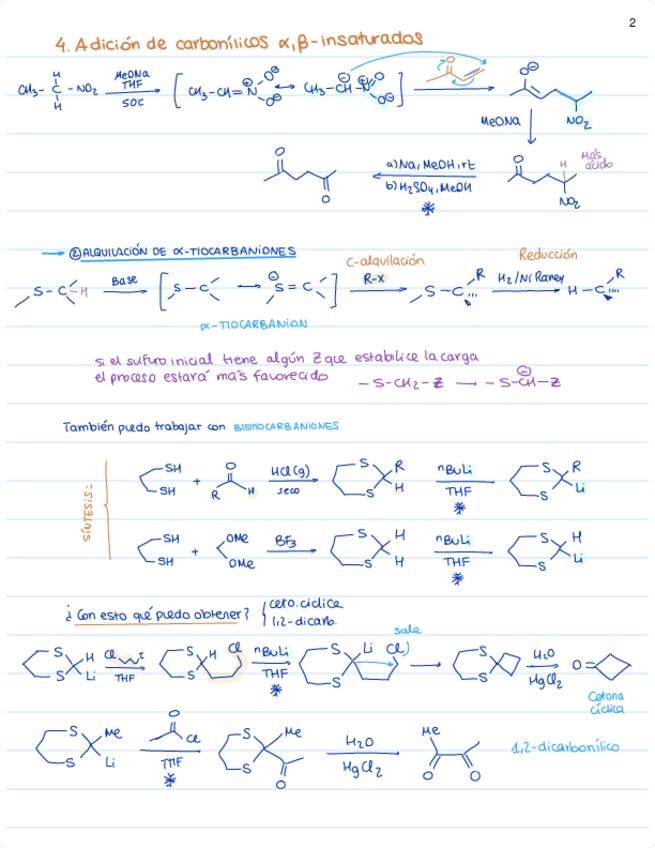 2
4. Adición de carbonílicos α,β-insaturados
CH3-C-NO2 MeONa THF SOC [CH3-CH=N ↔ CH3-CH-N]
H H O O O O
MeONa NO2
O a) Na, MeOH, rt O H Más ácido
b) H2SO4, MeOH NO2
O *
→ ② ALQUILACIÓN DE α-TIOCARBANIONES
C-alquilación Reducción
S-C-H Base [S-C → S=C] R-X S-C R H2/Ni Raney H-C R
α-TIOCARBANION
si el sulfuro inicial tiene algún Z que estabilice la carga
el proceso estará más favorecido -S-CH2-Z → -S-CH-Z
También puedo trabajar con BISTIOCARBANIONES
SÍNTESIS:
SH SH + O R H HCl(g) seco S S R H nBuLi THF * S S R Li
SH SH + OMe OMe BF3 S S H H nBuLi THF * S S H Li
¿Con esto qué puedo obtener? { ceto. cíclica
1,2-dicarb.
sale
S S H Li Cl I THF S S H Cl nBuLi THF * S S Li Cl → S S H2O HgCl2 O=
Cetona cíclica
S S Me Li O Cl THF * S S Me O H2O HgCl2 Me O O 1,2-dicarbonílico